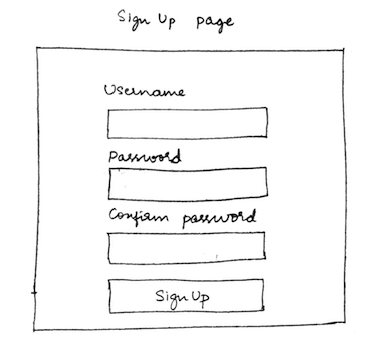 Sign Up page
Username
Password
Confirm password
Sign Up